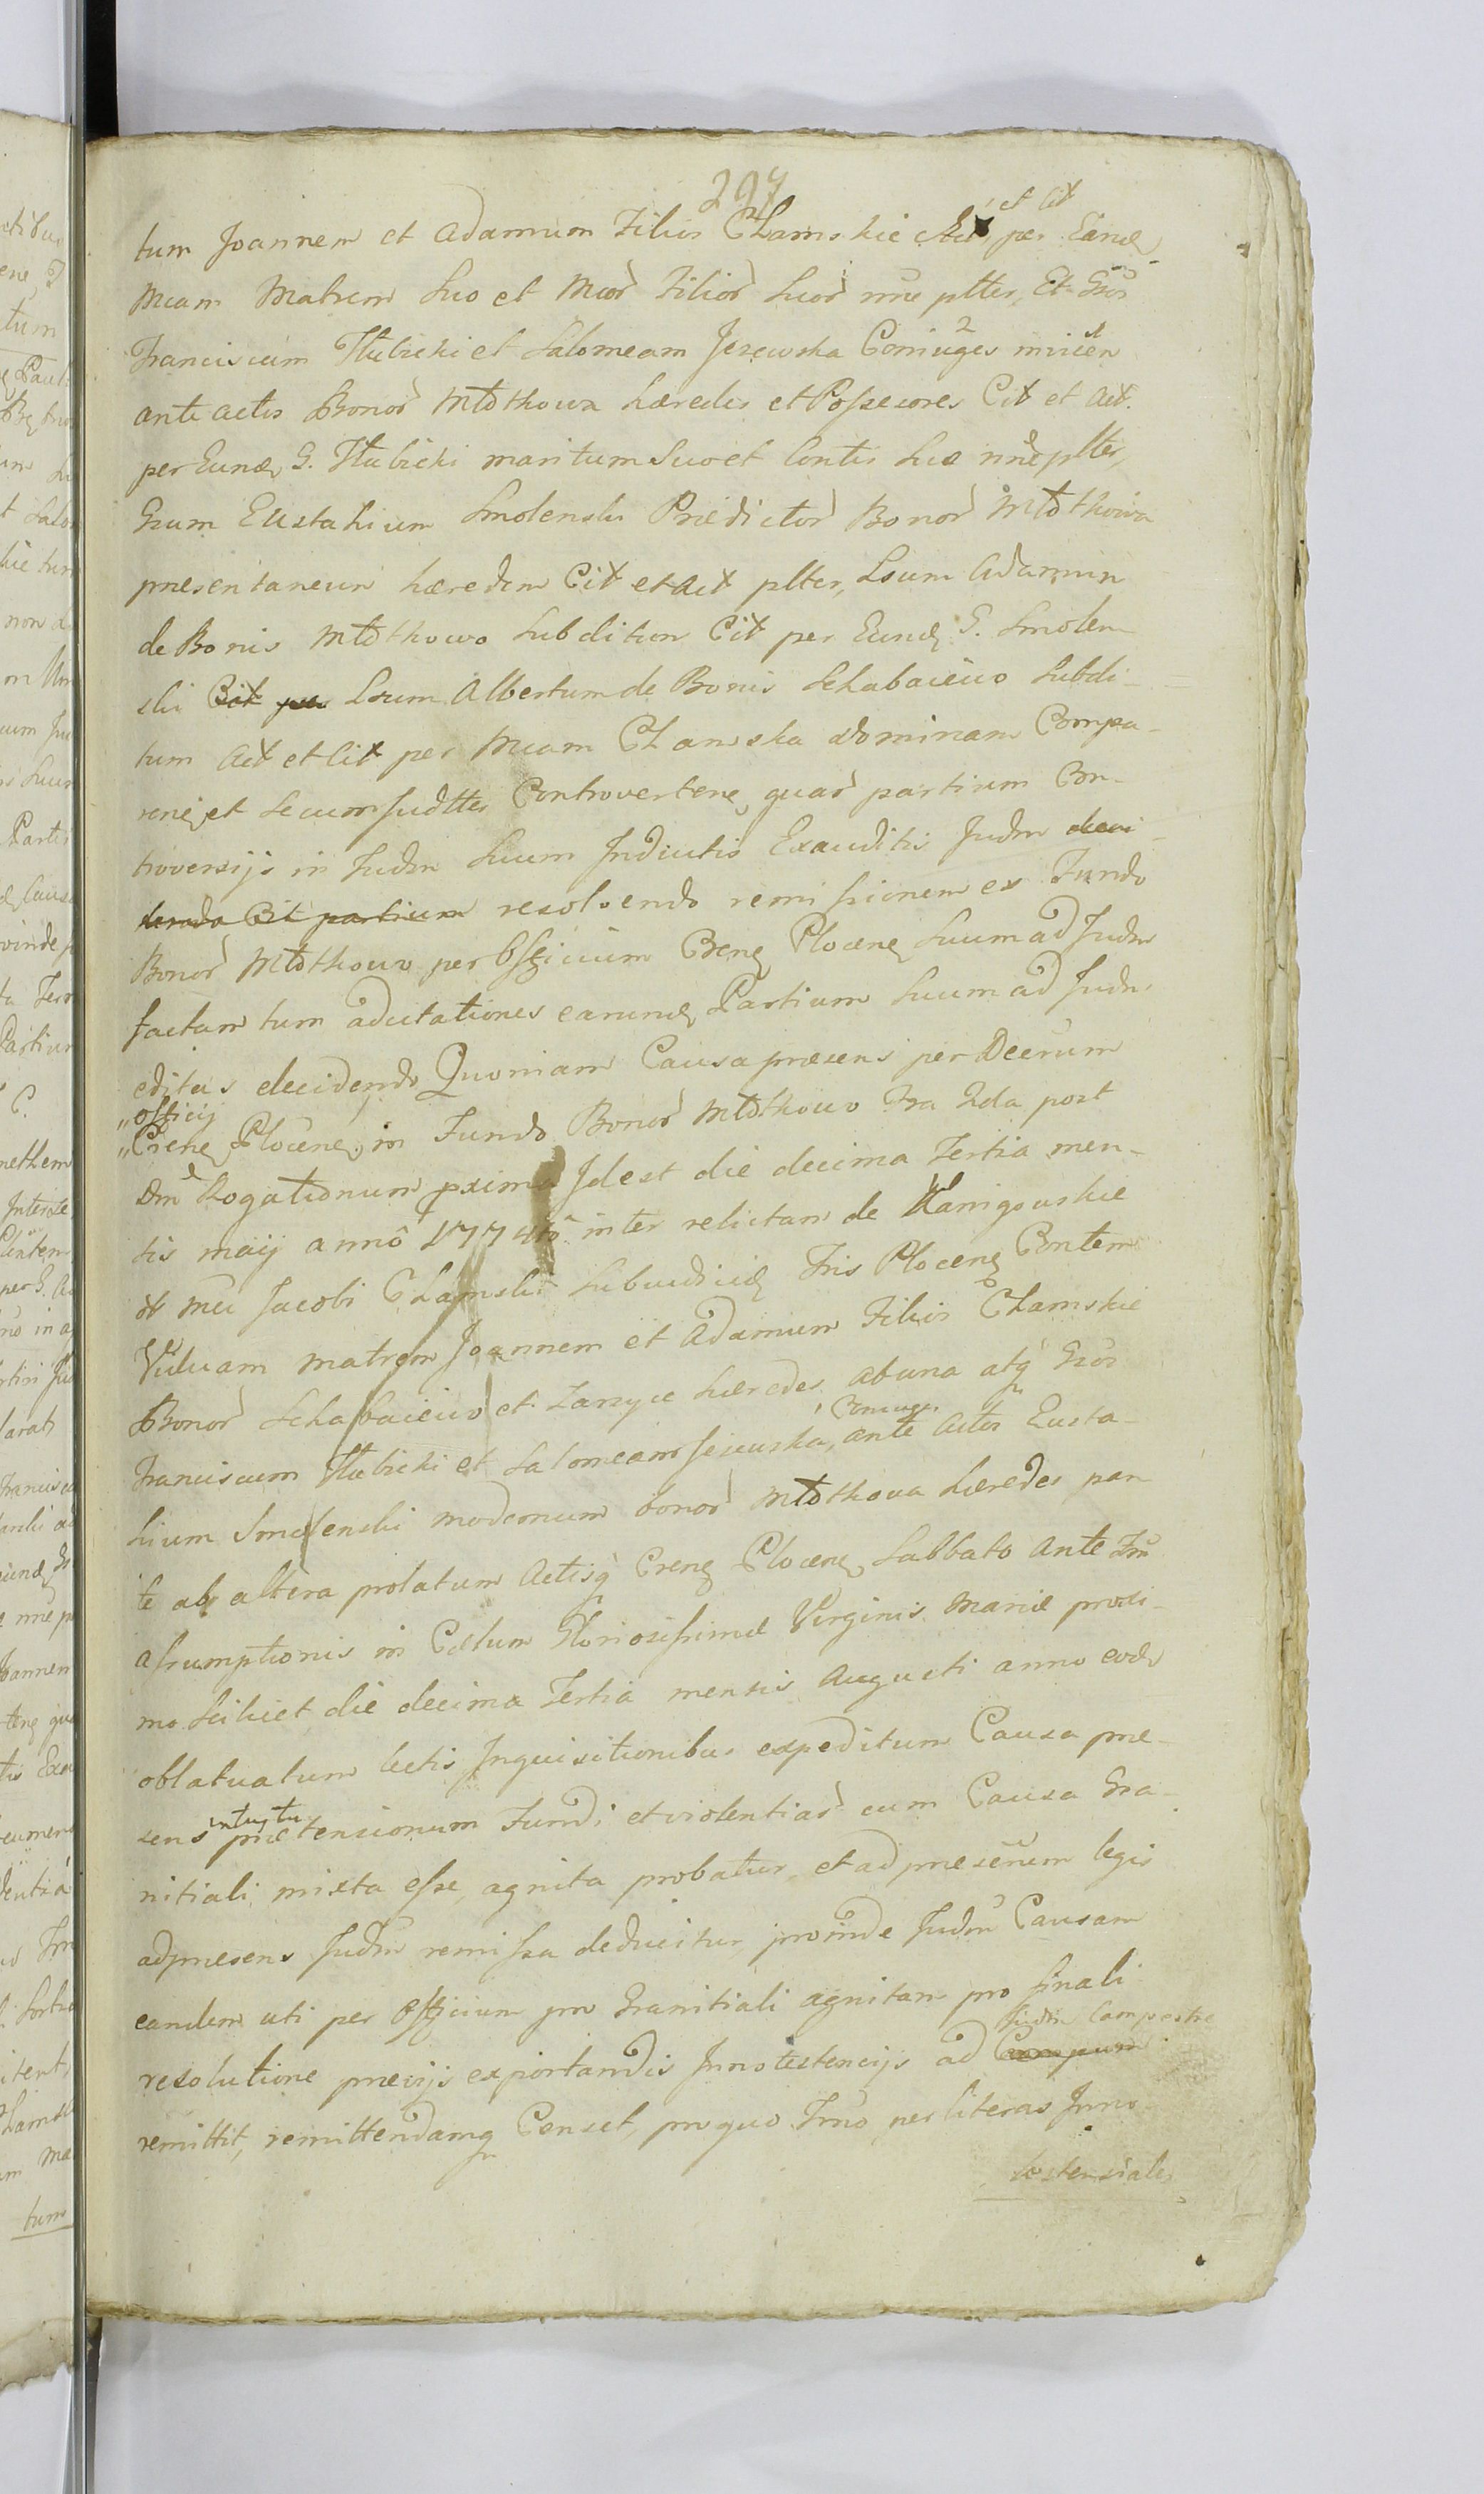 297
et Cit
tum Joannem et Adamum Filios Chamskie Act per Eand
Mcam Matrem Suo et Mcor Filior Suor nne plter, Et Gsos
Franciscum Tłubicki et Salomeam Jezewska Coniuges invicem
ante actes Bonor Młotkowa hæredes et Possesores Cit et Act.
per Eund G. Tłubicki maritum Suo et Contis Suæ nne pltes,
Gsum Eustahium Smolenski Prædictor Bonor Młotkowa
præsentaneum hæredem Cit et Act plter, Lsum Adamum
de Bonis Młotkowo Subditum Cit per Eund G. Smolen
ski Cit per Lsum Albertum de Bonis Schabaiewo Subdi-
tum Act et Cit per Mcam Chamska Dominam Compa-
ren, et Secum Judlter Controverten, quar partium Con-
troversijs in Judm Suum Indiutis Exauditis Judm deci-
dendo Cit partium resolvendo remissionem ex Fundo
Bonor Młotkowo per Offcium Cren Plocen Suum ad Judm
factam tum adcitationes earund Partium Suum ad Judm
editas decidendo Quoniam Causa præsens per Decrum
„officij
„Cren Plocen, in Fundo Bonor Młotkowo Fra 2da post
Dm Rogationum pxima Idest die decima Tertia men-
sis maij anno 1774to inter relictam de Kanigowskie
ol Mci Jacobi Chamski Subiudicis Tris Plocen Contem
Viduam matrem Joannem et Adamum Filios Chamskie
Bonor Schabaiewo et Zarzyce hæredes ab una atq Gsos
Franciscum Tłubicki et Salomeam Jezewska, Coniuges ante actos Eusta-
hium Smolenski modernum bonor Młotkowa hæredes par
te ab altera prolatum Actisq Cren Plocen Sabbato ante Fm
assumptionis in Cælum Gloriosissimæ Virginis Mariæ proxi-
mo Scilicet die decima Tertia mensis Augusti anno eod
oblatuatum lectis Inquisitionibus expeditum Causa præ-
sens intuitu prætensionum Fundi et violentiar cum Causa Gra-
nitiali mixta esse, agnita probatur, et ad præscrum legis
ad præsens Judm remissa deducitur, proinde Judm Causam
eandem uti per Offcium pro Granitiali agnitam pro finali
resolutione prævijs exportandis Innotestencijs ad Campum Judm Campestre
remittit, remittendamq Censet, pro quo Tmo per literas Inno-
testensiales